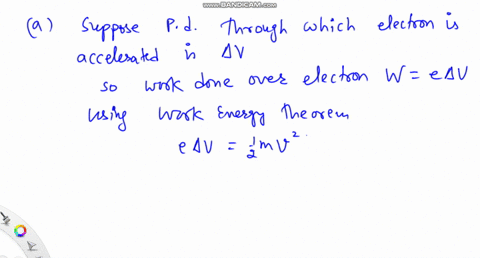 www.BANDICAM.com
(a) Suppose P.d. through which electron is
accelerated is ΔV
so work done over electron W = eΔV
Using Work Energy Theorem
eΔV = 1/2 mv²